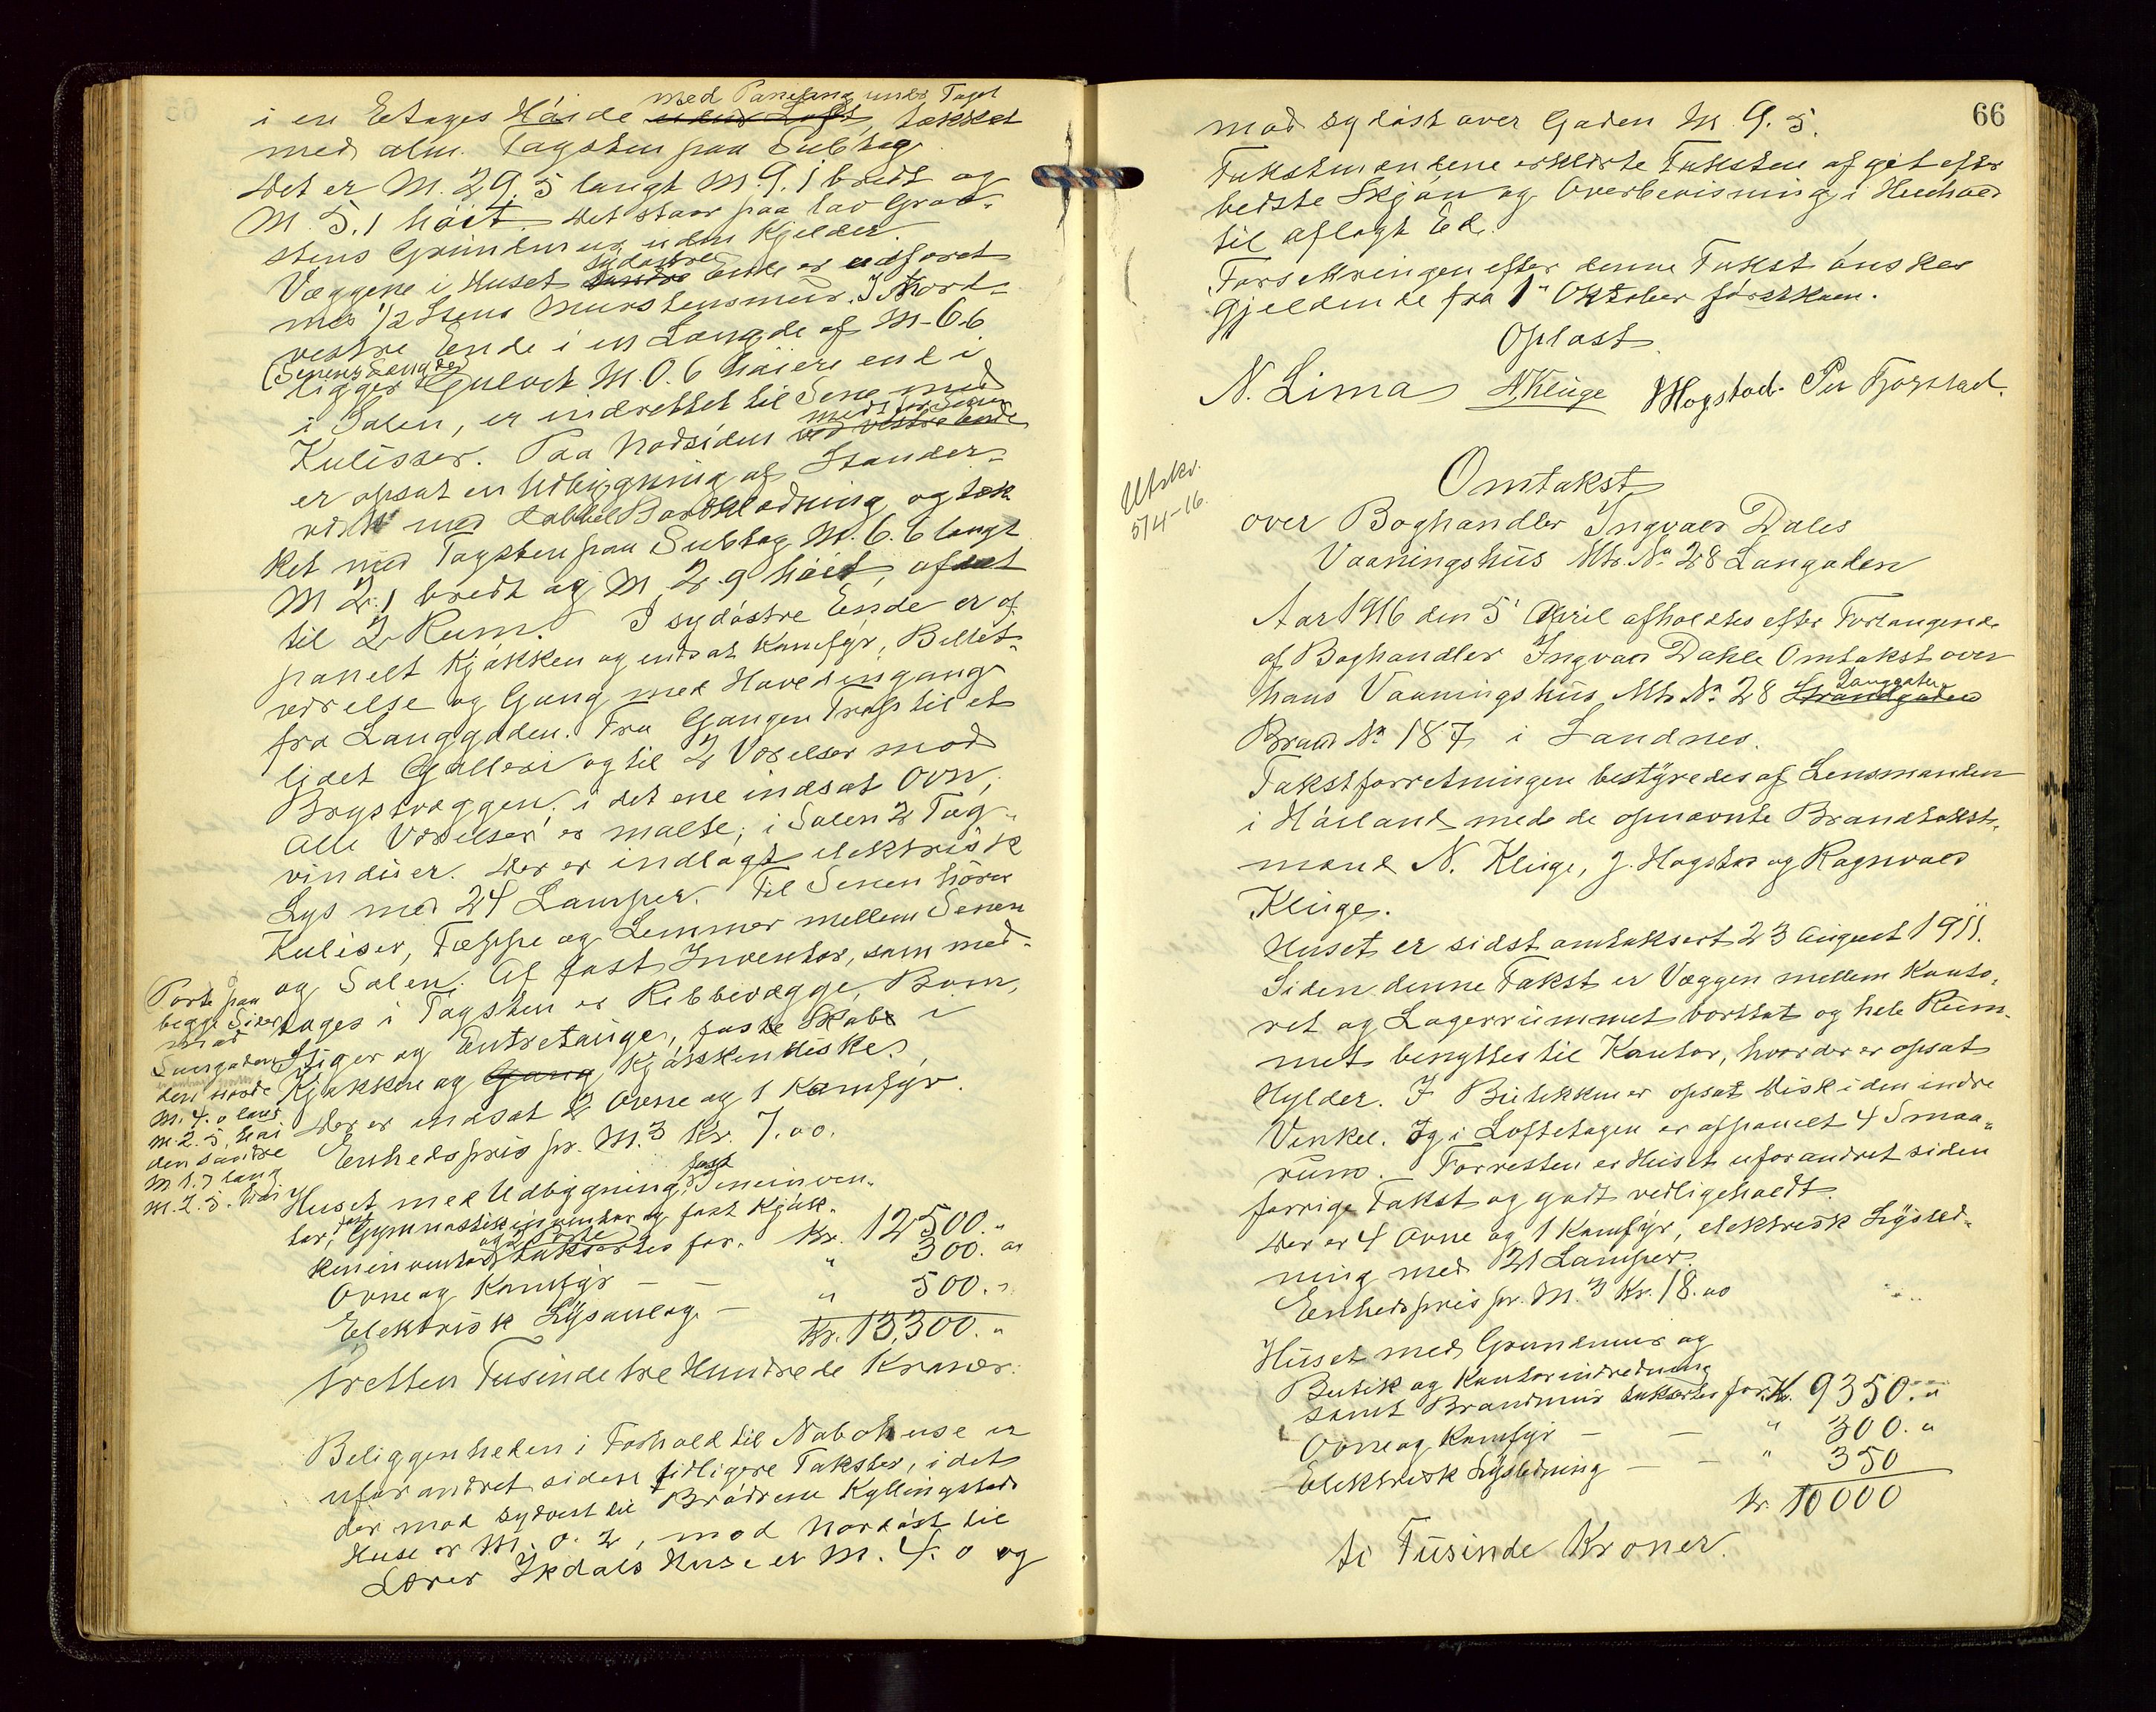 i en Etages Høide med Paneling under Taget uden Loft, tækket
med alm. Tagsten paa Subtag.
Det er M. 29,5 langt M. 9,1 bredt og
M. 5,1 høit. Det staar paa lav Graa-
stens Grundmur uden Kjelder
Væggene i Huset sydøstre søndre Ende er udføret
med 1/2 Stens Murstensmur. I Nord-
vestre Ende i en Længde af M-6.6
(Senens Længde)
ligger Gulvet M. 0.6 høiere end i
i Salen, er indrettet til Sene med
Kulisser. Paa Nordsiden midt for Senen ved vestre Ende
er opsat en Udbygning af Stander-
verk med dobbel Bordklædning og tæk
ket med Tagsten paa Subtag M. 6.6 langt
M 2.1 bredt og M 2.9 høit, afdelt
til 2 Rum. I sydøstre Ende er af-
panelt Kjøkken og indsat Komfyr, Billet-
værelse og Gang med Hovedingang
fra Langgaden. Fra Gangen Trap til et
lidet Galleri og til 2 Værelser mod
Brystvæggen, i det ene indsat Ovn,
Alle Værelser er malte; i Salen 2 Tag-
vinduer. Der er indlagt elektrisk
Lys med 24 Lamper. Til Senen hører
Kuliser, Tæppe og Lemmer mellem Senen
og Salen. Af fast Inventar, som med-
tages i Tagsten er Ribbevægge, Bom,
Stiger og Entretauge, faste Skabe i
Kjøkken og Gang Kjøkkendiske.
Der er indsat 2 Ovne og 1 Komfyr.
Enhedspris pr. M.3 Kr. 7.00.
Porte paa
begge Sider
mod
Langgaden
den nordre
M. 4.0 lang
M. 2.5 høi
den søndre
M 1.7 lang
M. 2.5. høi
Huset med Udbygning, fast Seneinven-
tar, fast Gymnastikinventar og fast Kjøk-
keninventar og 2 Porte taksertes for. Kr. 12500.„
Ovne og Komfyr — — „ 300.00
Elektrisk Lysanlæg — „ 500.„
Kr. 13,300.„
tretten Tusinde tre Hundrede Kroner.
Beliggenheden i Forhold til Nabohuse er
uforandret siden tidligere Takster, idet
der mod sydvest til Brødrene Kyllingstads
Huse er M. 0.2, mod Nordøst til
Lærer Ikdals Huse er M. 4.0 og
66
mod sydøst over Gaden M. 9.5.
Takstmændene erklærte Taksten afgit efter
bedste Skjøn og Overbevisning i Henhold
til aflagt Ed.
Forsikringen efter denne Takst ønskes
gjeldende fra 1ste Oktober førstkom.
Oplæst
N. Lima N. Kluge J Hogstad. Per Fjogstad.
Utskr.
5/4-16.
Omtakst
over Boghandler Ingvald Dales
Vaaningshus Mtr. No 28 Langgaden
Aar 1916 den 5' April afholdtes efter Forlangende
af Boghandler Ingvald Dahle Omtakst over
hans Vaaningshus Mtr No 28 Langgaten Strandgaden
Brand No 187 i Sandnes.
Takstforretningen bestyredes af Lensmanden
i Høiland med de opnævnte Brandtakst-
mænd N. Kluge, J. Hogstad og Ragnvald
Kluge.
Huset er sidst omtaksert 23 August 1911.
Siden denne Takst er Væggen mellem Konto-
ret og Lagerrummet borttat og hele Rum-
met benyttes til Kontor, hvor der er opsat
Hylder. I Butikken er opsat Disk i den indre
Vinkel. Og i Loftetagen er afpanelt 4 Smaa-
rum. Forresten er Huset uforandret siden
forrige Takst og godt vedligeholdt.
Der er 4 Ovne og 1 Komfyr, elektrisk Lysled-
ning med 21 Lamper.
Enhedspris pr. M.3 Kr. 18.00
Huset med Grundmur og
Butik og Kontorindredning
samt Brandmur taksertes for. Kr. 9350.„
Ovne og Komfyr — — „ 300.„
Elektrisk Lysledning — — „ 350
Kr. 10000
ti Tusinde Kroner.